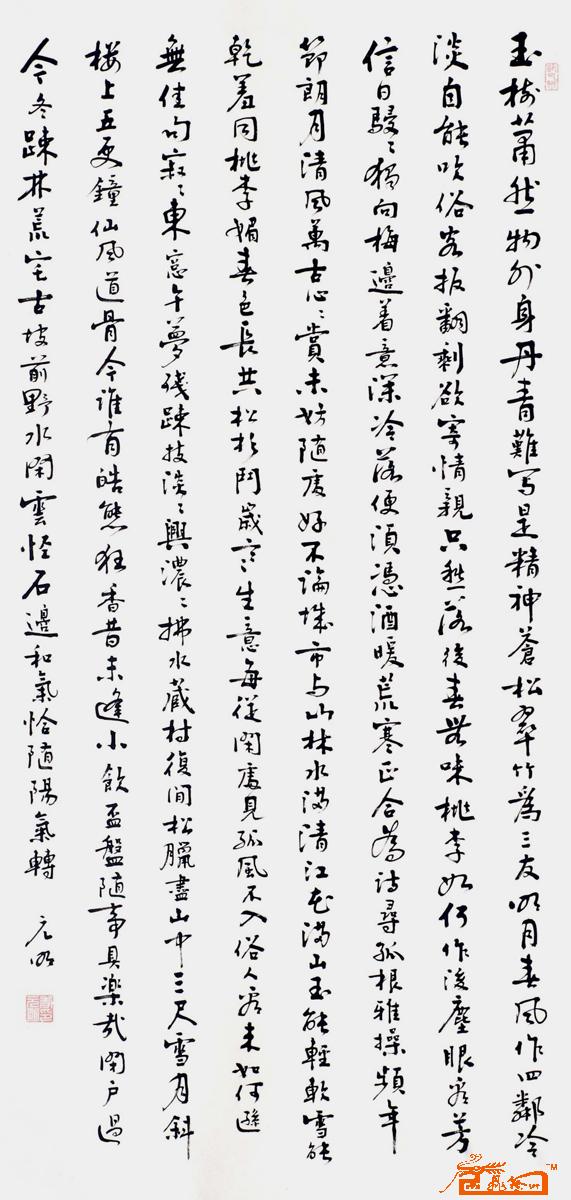 玉樹蕭然物外身丹青難写是精神蒼松翠竹為三友明月春風作四鄰冷
淡自能吹俗客扳翻剩欲寄情親只愁落後春無味桃李如何作後塵眼看芳
信日駸々獨向梅邊着意深冷落便須憑酒暖荒寒正合為詩尋孤根雅操頻年
節朗月清風萬古心心賞未妨随處好不論城市与山林水満清江花満山玉能輕軟雪能
乾羞同桃李媚春色長共松杉鬥歲寒生意每從閑處見孤風不入俗人看未如何遜
無佳句寂々東窓午夢残疎枝淡々興濃々拂水藏村復間松臘盡山中三尺雪月斜
樓上五更鐘仙風道骨今誰有皓態狂香昔未逢小飲盃盤随事具樂哉閉戶過
今冬疎林荒宅古坡前野水閑雲怪石邊和氣恰随陽氣轉